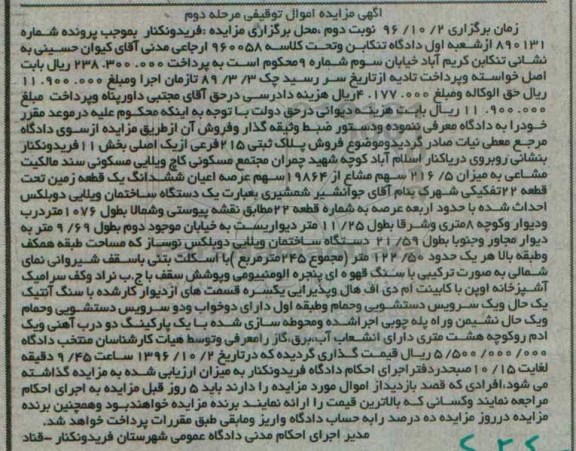 آگهی مزایده اموال توقیفی مرحله دوم
زمان برگزاری ۱۰/۲/ ۹۶ نوبت دوم ،محل برگزاری مزایده :فریدونکنار بموجب پرونده شماره
۸۹۰۱۳۱ ازشعبه اول دادگاه تنکابن وتحت کلاسه ۹۶۰۰۵۸ ارجاعی مدنی آقای کیوان حسینی به
نشانی تنکابن کریم آباد خیابان سوم شماره ۹محکوم است به پرداخت ۲۳۸.۳۰۰.۰۰۰ ریال بابت
اصل خواسته وپرداخت تادیه ازتاریخ سر رسید چک ۳/ ۳/ ۸۹ تازمان اجرا ومبلغ ۱۱.۹۰۰.۰۰۰
ریال حق الوکاله ومبلغ ۴.۱۷۷.۰۰۰ریال هزینه دادرسی درحق آقای مجتبی داورپناه وپرداخت مبلغ
۱۱.۹۰۰.۰۰۰ ریال بابت هزینه دیوانی درحق دولت با توجه به اینکه محکوم علیه درموعد مقرر
خودرا به دادگاه معرفی ننموده ودستور ضبط وثیقه گذار وفروش آن ازطریق مزایده ازسوی دادگاه
مرجع معطی نیات صادر گردیدوموضوع فروش پلاک ثبتی ۲۱۵فرعی ازیک اصلی بخش ۱۱فریدونکنار
بنشانی روبروی دریاکنار اسلام آباد کوچه شهید چمران مجتمع مسکونی کاج ویلایی مسکونی سند مالکیت
مشاعی به میزان ۲۱۶/۵ سهم مشاع از ۱۹۸۶۴سهم عرصه اعیان ششدانگ یک قطعه زمین تحت
قطعه ۲۲تفکیکی شهرک بنام آقای جوانشیر شمشیری بعبارت یک دستگاه ساختمان ویلایی دوبلکس
احداث شده با حدود اربعه عرصه به شماره قطعه ۲۲مطابق نقشه پیوستی وشمالا بطول ۱۰۷۶متردرب
ودیوار وکوچه ۸متری وشرقا بطول ۱۱/۲۵ متر دیواریست به خیابان موجود دوم بطول ۹/۶۹ متر به
دیوار مجاور وجنوبا بطول ۲۱/۵۹ دستگاه ساختمان ویلایی دوبلکس نوساز که مساحت طبقه همکف
وطبقه بالا هر یک حدود ۱۲۲/۵۰ متر (مجموع ۲۴۵مترمربع )با اسکلت بتنی باسقف شیروانی نمای
شمالی به صورت ترکیبی با سنگ قهوه ای پنجره الومنییومی وپوشش سقف با چ.ب نراد وکف سرامیک
آشپزخانه اوپن با کابینت ام دی اف هال وپذیرایی یکسره قسمت های ازدیوار کارشده با سنگ آنتیک
یک حال ویک سرویس دستشویی وحمام وطبقه اول دارای دوخواب ودو سرویس دستشویی وحمام
ویک حال نشیمن وراه پله چوبی اجراشده ومحوطه سازی شده با یک پارکینگ دو درب آهنی ویک
آدم روکوچه هشت متری دارای انشعاب آب،برق،گاز رامعرفی وتوسط هیات کارشناسان منتخب دادگاه
۵/۵۰۰/۰۰۰/۰۰۰ ریال قیمت گذاری گردیده که درتاریخ ۱۰/۲/ ۱۳۹۶ ساعت ۹/۴۵ دقیقه
لغایت ۱۰/۱۵ صبحدردفتراجرای احکام دادگاه فریدونکنار به میزان ارزیابی شده به مزایده گذاشته
می شود،افرادی که قصد بازدیداز اموال مورد مزایده را دارند باید ۵ روز قبل مزایده به اجرای احکام
مراجعه نمایند وکسانی که بالاترین قیمت را ارائه نمایند برنده مزایده خواهندبود وهمچنین برنده
مزایده درروز مزایده ده درصد رابه حساب دادگاه واریز ومابقی طبق مقررات پرداخت خواهد شد.
مدیر اجرای احکام مدنی دادگاه عمومی شهرستان فریدونکنار -قناد